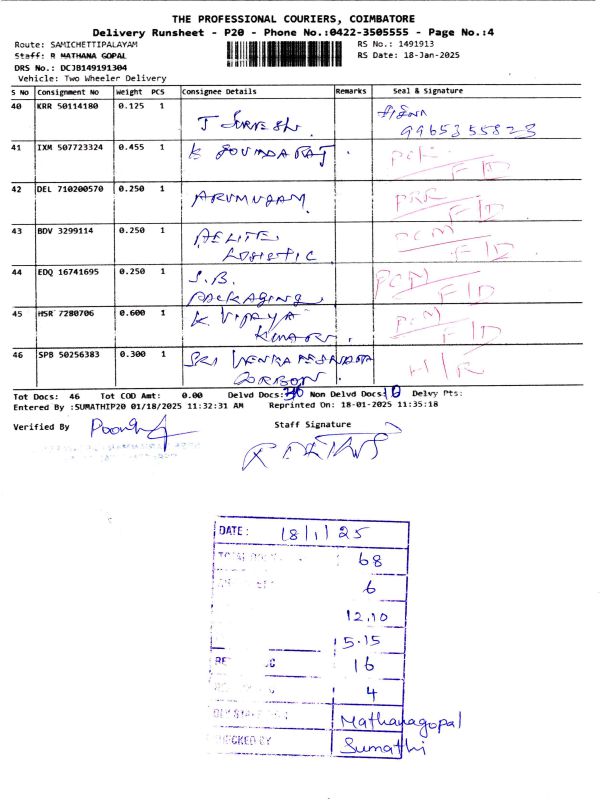 THE PROFESSIONAL COURIERS, COIMBATORE
Delivery Runsheet - P20 - Phone No.:0422-3505555 - Page No.:4
Route: SAMICHETTIPALAYAM RS No.: 1491913
Staff: R MATHANA GOPAL RS Date: 18-Jan-2025
DRS No.: DCJB149191304
Vehicle: Two Wheeler Delivery
S No Consignment No Weight PCS Consignee Details Remarks Seal & Signature
40 KRR 50114180 0.125 1
T Suresh. 9965355823
41 IXM 507723324 0.455 1 K GOVINDARAJ.
F/D
42 DEL 710200570 0.250 1
ARUMUGAM PRR
F/D
43 BDV 3299114 0.250 1 AELITE PCM
LOGISTIC F/D
44 EDQ 16741695 0.250 1 S.B. PCM
PACKAGING F/D
45 HSR 7280706 0.600 1 K. VIJAYA PCM
KUMAR. F/D
46 SPB 50256383 0.300 1 SRI VENKATESWARA H/R
CORBON
Tot Docs: 46 Tot COD Amt: 0.00 Delvd Docs: Non Delvd Docs: Delvy Pts:
Entered By :SUMATHIP20 01/18/2025 11:32:31 AM Reprinted On: 18-01-2025 11:35:18
Verified By Staff Signature
DATE: 18/1/25
68
6
12.10
5.15
16
4
Mathanagopal
CHECKED BY Sumathi